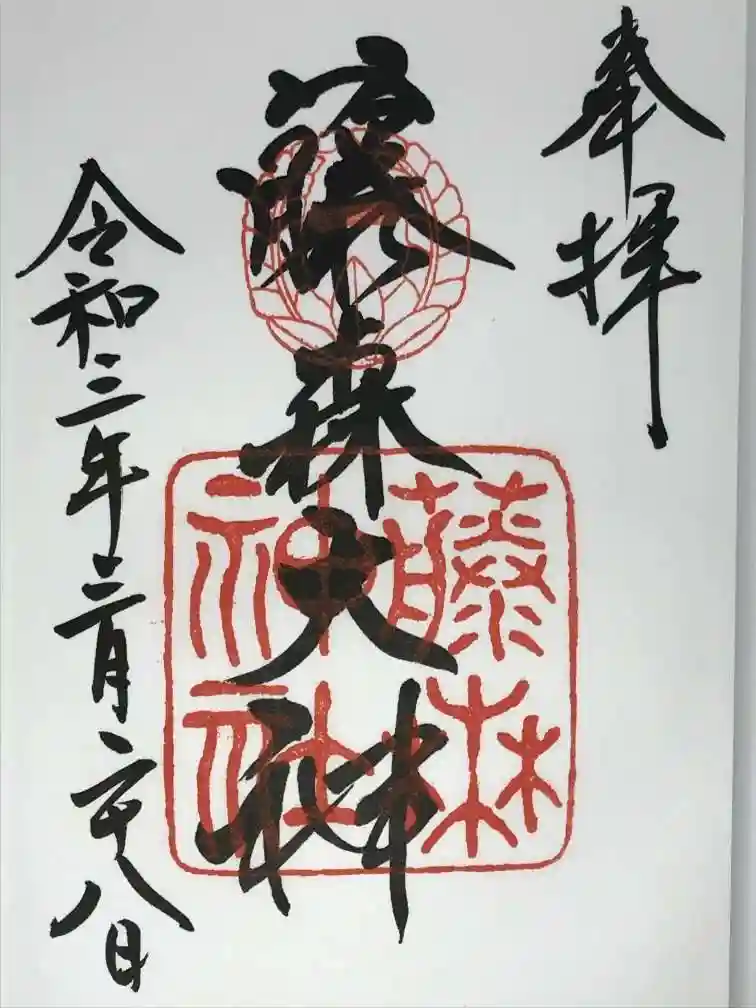 奉拝
藤森大神
藤森神社
令和三年三月二十八日